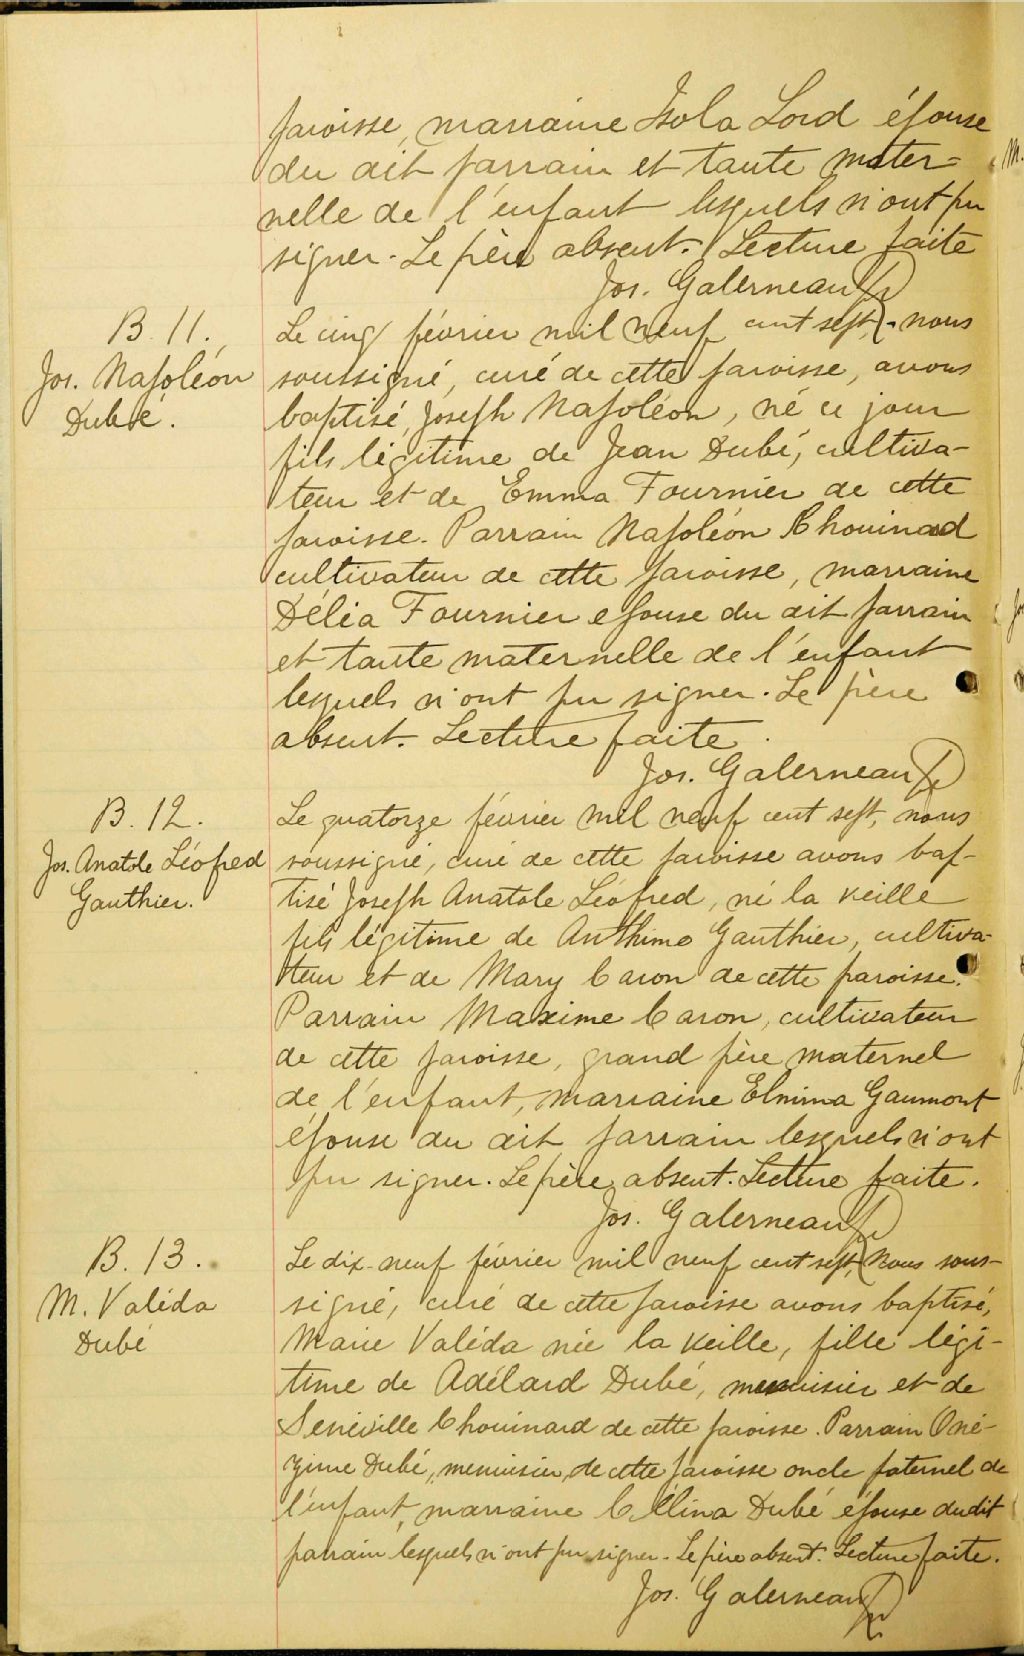 paroisse, marraine Isola Lord épouse
du dit parrain et tante mater=
nelle de l'enfant lesquels n'ont pu
signer. Le père absent. Lecture faite
Jos. Galerneau Ptr
B. 11.
Jos. Napoléon
Dubé.
Le cinq février mil neuf cent sept, nous
soussigné, curé de cette paroisse, avons
baptisé, Joseph Napoléon, né ce jour
fils légitime de Jean Dubé, cultiva-
teur et de Emma Fournier de cette
paroisse. Parrain Napoléon Chouinard
cultivateur de cette paroisse, marraine
Délia Fournier epouse du dit parrain
et tante maternelle de l'enfant
lesquels n'ont pu signer. Le père
absent. Lecture faite.
Jos. Galerneau Ptr
B. 12.
Jos. Anatole Léofred
Gauthier.
Le quatorze février mil neuf cent sept, nous
soussigné, curé de cette paroisse avons bap-
tisé Joseph Anatole Léofred, né la veille
fils légitime de Anthime Gauthier, cultiva-
teur et de Mary Caron de cette paroisse.
Parrain Maxime Caron, cultivateur
de cette paroisse, grand père maternel
de l'enfant, marraine Elmina Gaumont
épouse du dit parrain lesquels n'ont
pu signer. Le père absent. Lecture faite.
Jos. Galerneau Ptr
B. 13.
M. Valéda
Dubé
Le dix-neuf février mil neuf cent sept, Nous sous-
signé, curé de cette paroisse avons baptisé,
Marie Valéda née la veille, fille légi-
time de Adélard Dubé, menuisier et de
Seneville Chouinard de cette paroisse. Parrain Oné-
zime Dubé, menuisier de cette paroisse oncle paternel de
l'enfant, marraine Célina Dubé épouse dudit
parrain lesquels n'ont pu signer. Le père absent. Lecture faite.
Jos. Galerneau Ptr